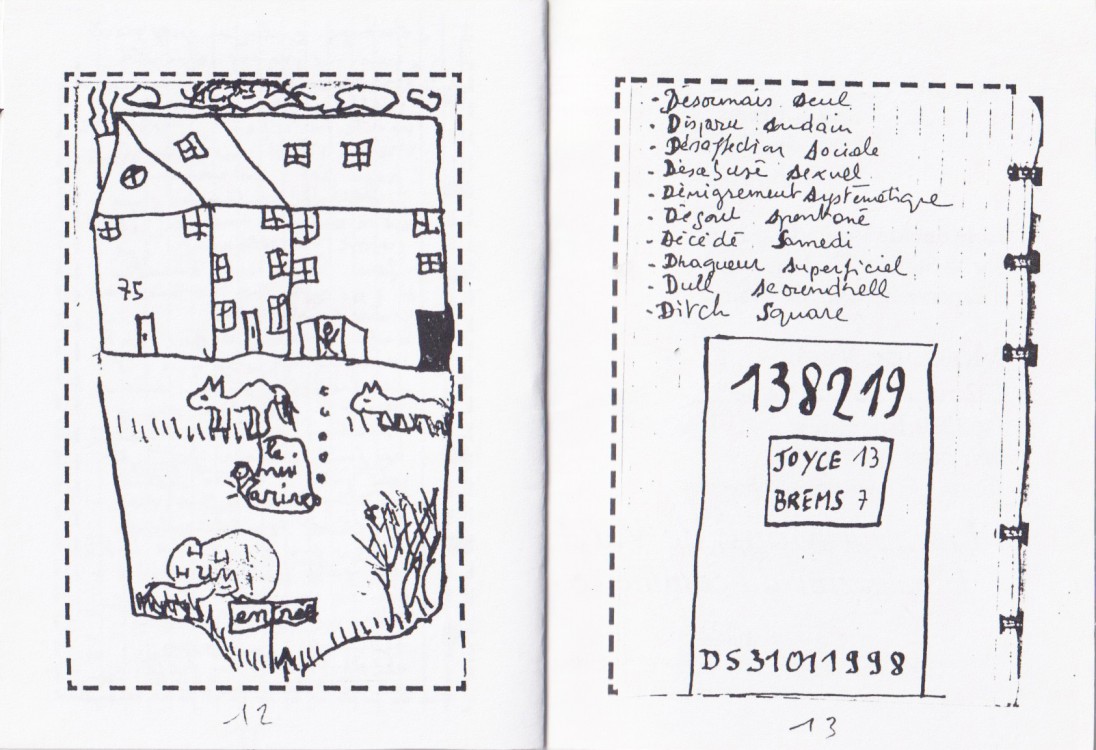 75
le
HUM
entrée
12
- Désormais seul
- Disparu soudain
- Désaffection sociale
- Désabusé sexuel
- Dénigrement systématique
- Dégout spontané
- Décédé Samedi
- Dragueur superficiel
- Dull scoundrell
- Ditch Square
138219
JOYCE 13
BREMS 7
DS31011998
13